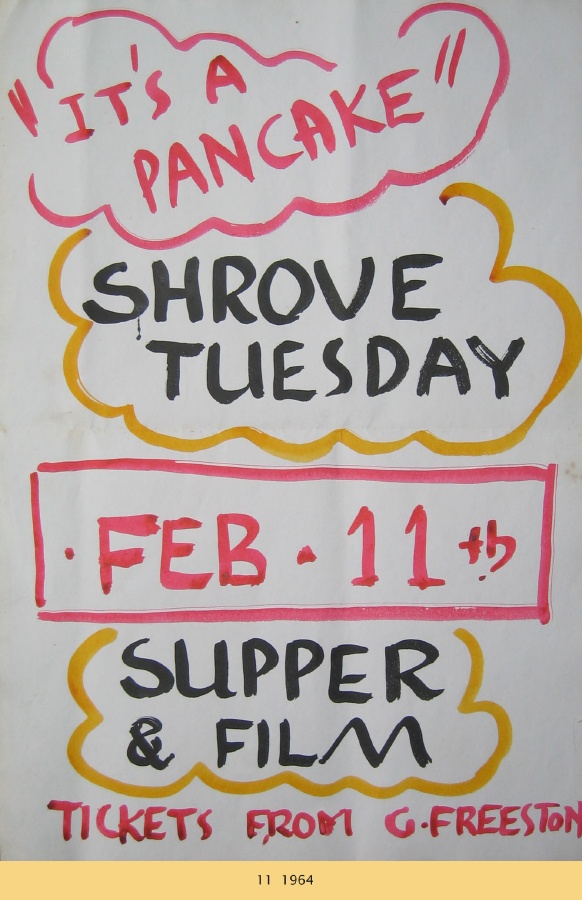 "IT'S A
PANCAKE"
SHROVE
TUESDAY
· FEB · 11th
SUPPER
& FILM
TICKETS FROM G·FREESTON
11 1964